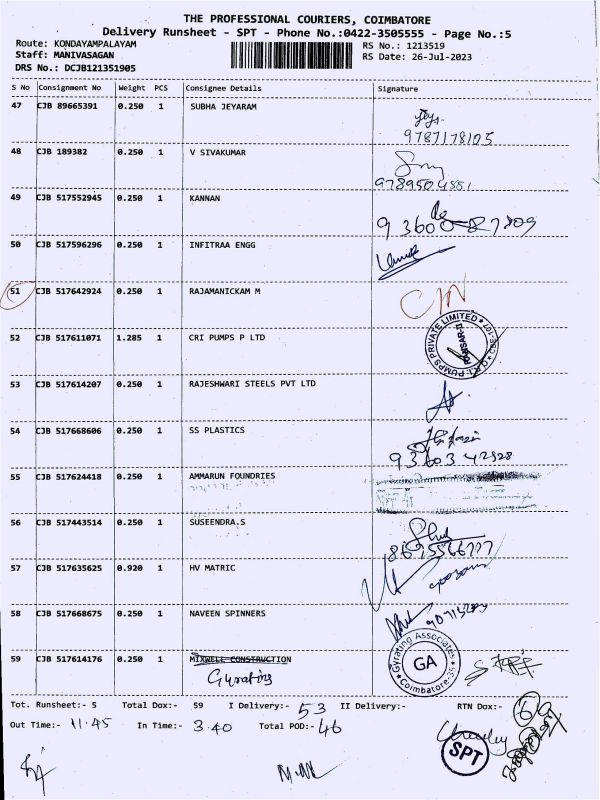 THE PROFESSIONAL COURIERS, COIMBATORE
Delivery Runsheet - SPT - Phone No.:0422-3505555 - Page No.:5
Route: KONDAYAMPALAYAM RS No.: 1213519
Staff: MANIVASAGAN RS Date: 26-Jul-2023
DRS No.: DCJB121351905
S No Consignment No Weight PCS Consignee Details Signature
47 CJB 89665391 0.250 1 SUBHA JEYARAM
9787178105
48 CJB 189382 0.250 1 V SIVAKUMAR
9789504851
49 CJB 517552945 0.250 1 KANNAN
50 CJB 517596296 0.250 1 INFITRAA ENGG
51 CJB 517642924 0.250 1 RAJAMANICKAM M
52 CJB 517611071 1.285 1 CRI PUMPS P LTD
PUMPS PRIVATE LIMITED
53 CJB 517614207 0.250 1 RAJESHWARI STEELS PVT LTD
54 CJB 517668606 0.250 1 SS PLASTICS
55 CJB 517624418 0.250 1 AMMARUN FOUNDRIES
56 CJB 517443514 0.250 1 SUSEENDRA.S
57 CJB 517635625 0.920 1 HV MATRIC
58 CJB 517668675 0.250 1 NAVEEN SPINNERS
59 CJB 517614176 0.250 1 MIXWELL CONSTRUCTION
Gyrating
Gyrating Associates
GA
Coimbatore-35
Tot. Runsheet:- 5 Total Dox:- 59 I Delivery:- 53 II Delivery:- RTN Dox:-
Out Time:- 11.45 In Time:- 3.40 Total POD:- 46
SPT